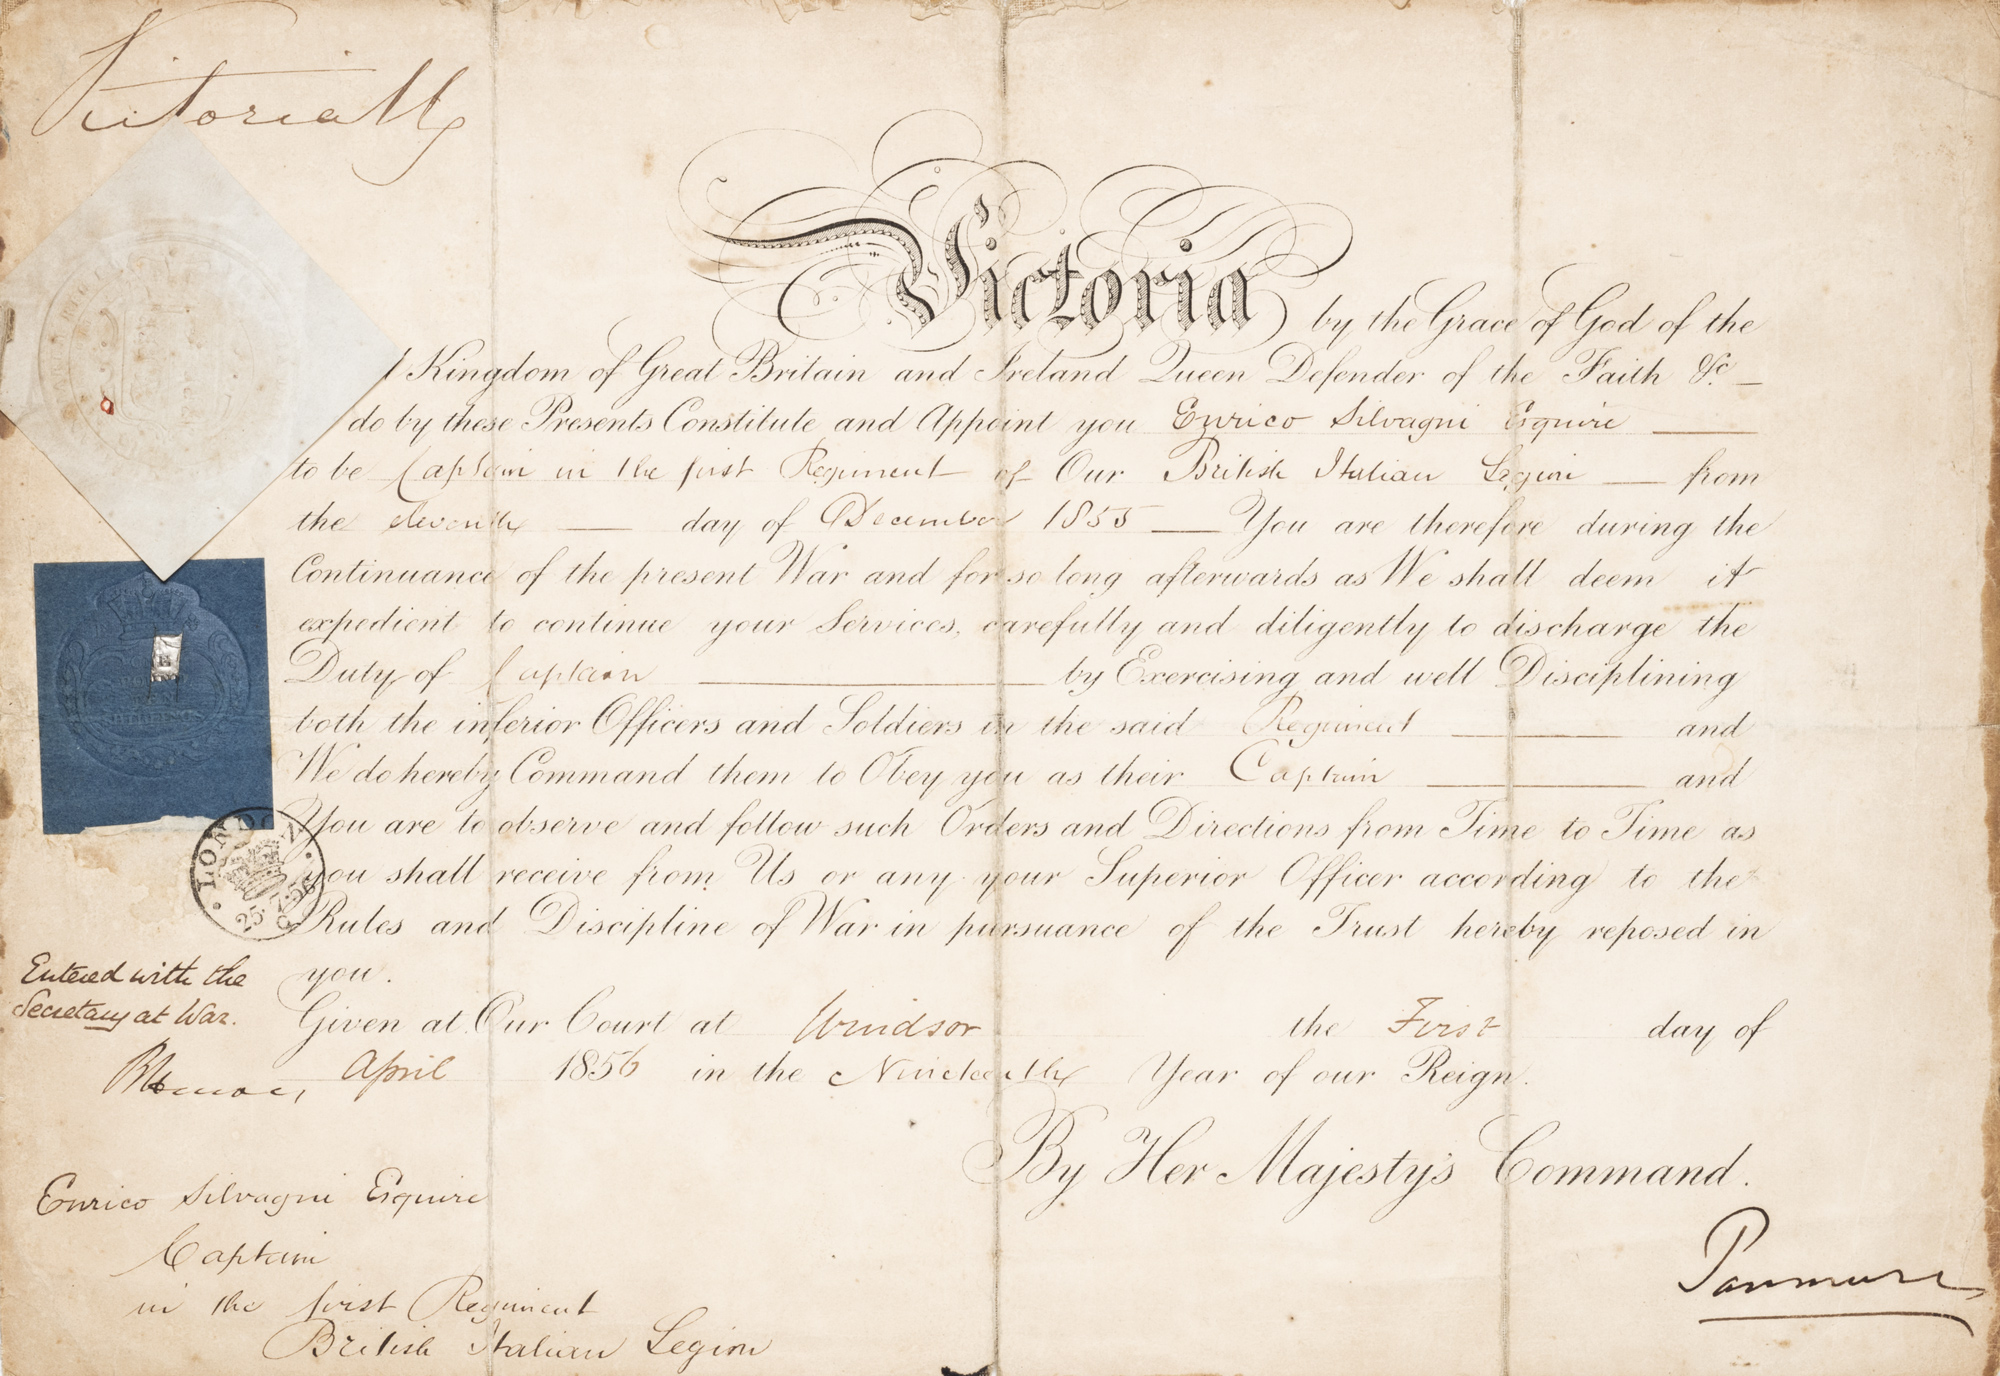 Victoria R
Victoria by the Grace of God of the
d Kingdom of Great Britain and Ireland Queen Defender of the Faith &c.
do by these Presents Constitute and Appoint you Enrico Silvagni Esquire
to be Captain in the first Regiment of Our British Italian Legion from
the eleventh day of December 1855 You are therefore during the
Continuance of the present War and for so long afterwards as We shall deem it
expedient to continue your Services, carefully and diligently to discharge the
Duty of Captain by Exercising and well Disciplining
both the inferior Officers and Soldiers in the said Regiment and
We do hereby Command them to Obey you as their Captain and
You are to observe and follow such Orders and Directions from Time to Time as
you shall receive from Us or any your Superior Officer according to the
Rules and Discipline of War in pursuance of the Trust hereby reposed in
you.
LONDON
25·7·56
Entered with the
Secretary at War.
Given at Our Court at Windsor the First day of
April 1856 in the Nineteenth Year of our Reign.
By Her Majesty's Command.
Panmure
Enrico Silvagni Esquire
Captain
in the first Regiment
British Italian Legion